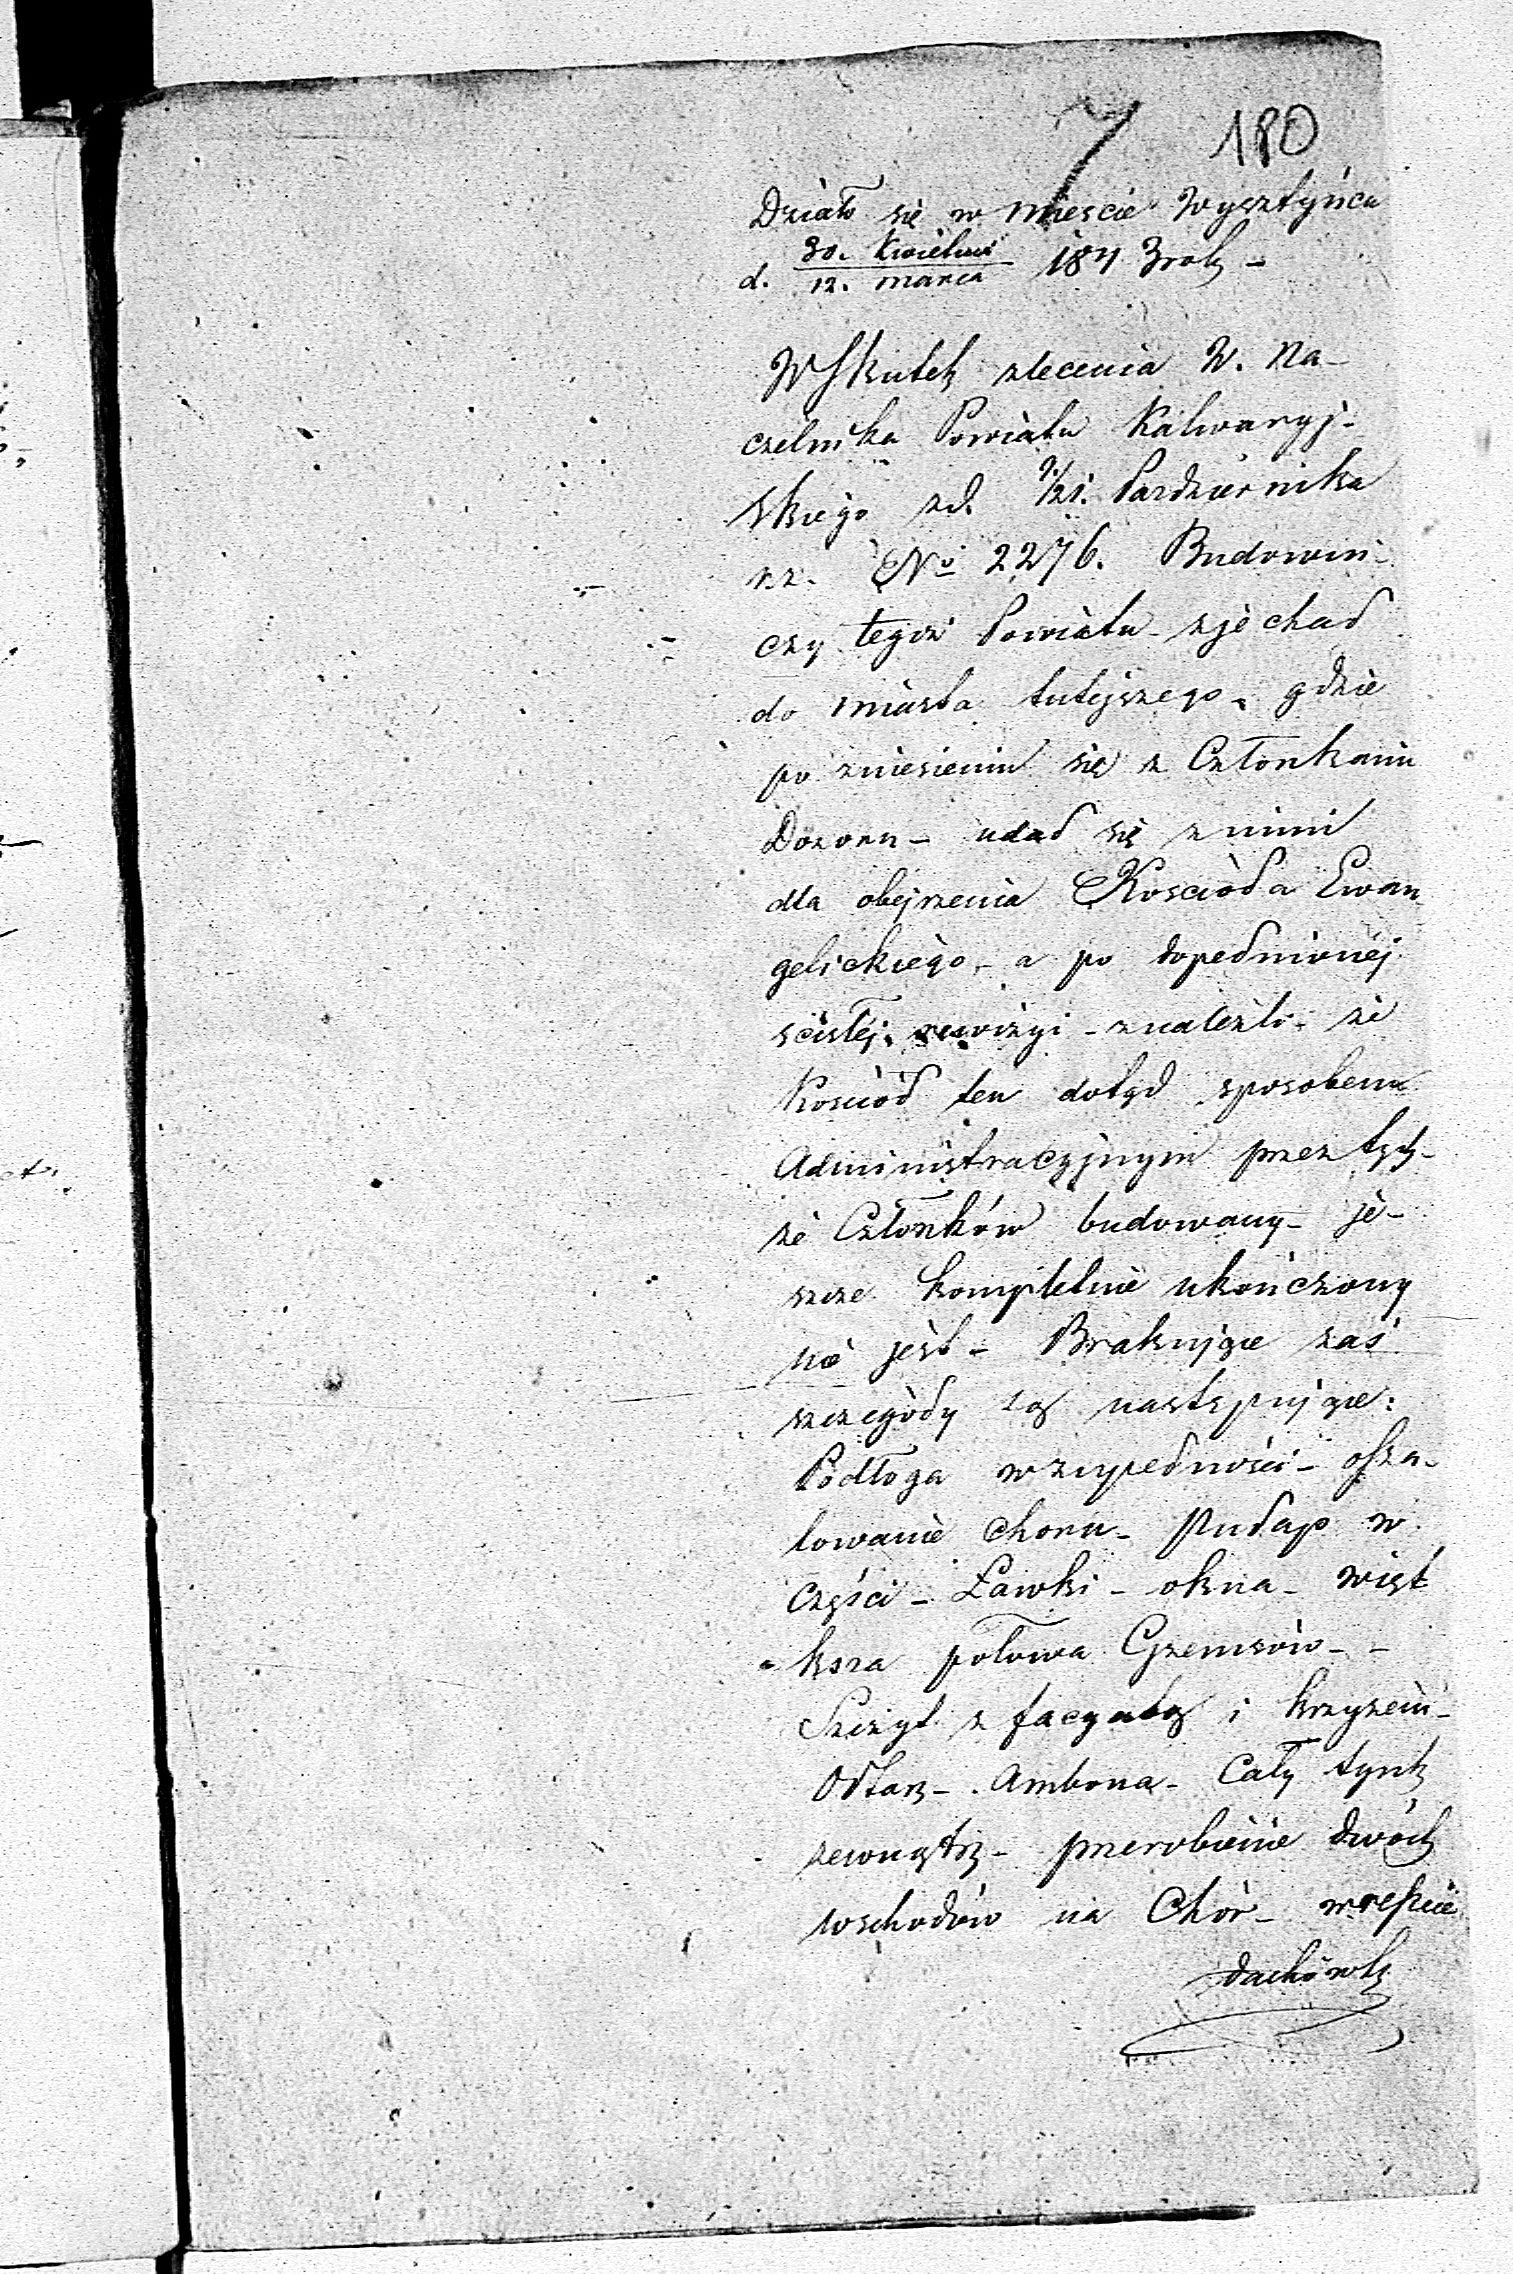 7 180
Działo się w mieście Wysztyńcu
d. 30. Kwietnia / 12. marca 1843 rok –
W Skutek zlecenia W. Na-
czelnika Powiatu Kalwaryj-
skiego zd. 9/21. Pazdziernika
rz. No 2276. Budowni-
czy tegoż Powiatu zjechał
do miasta tutejszego, gdzie
po zniesieniu się z Członkami
Dozoru – udał się z nimi
dla obejrzenia Kościoła Ewan
gelickiego, – a po dopełnionéj
scisłéj rewizyi – znalezli – że
Kościół ten dotąd sposobem
Administracyjnym przez tych-
że Członków budowany – je-
szcze kompletnie ukończony
nie jest – Brakujące zaś
szczegóły są następujące:
Podłoga w zupełności – osza-
lowanie choru – Pułap w
części – Ławki – okna – więk
ksza połowa Gzemsów –
Szczyt z facyatą i krzyżem –
Ołtarz – Ambona – Cały tynk
zewnątrz – przerobienie dwóch
wschodów na Chór – wreście
dachówk